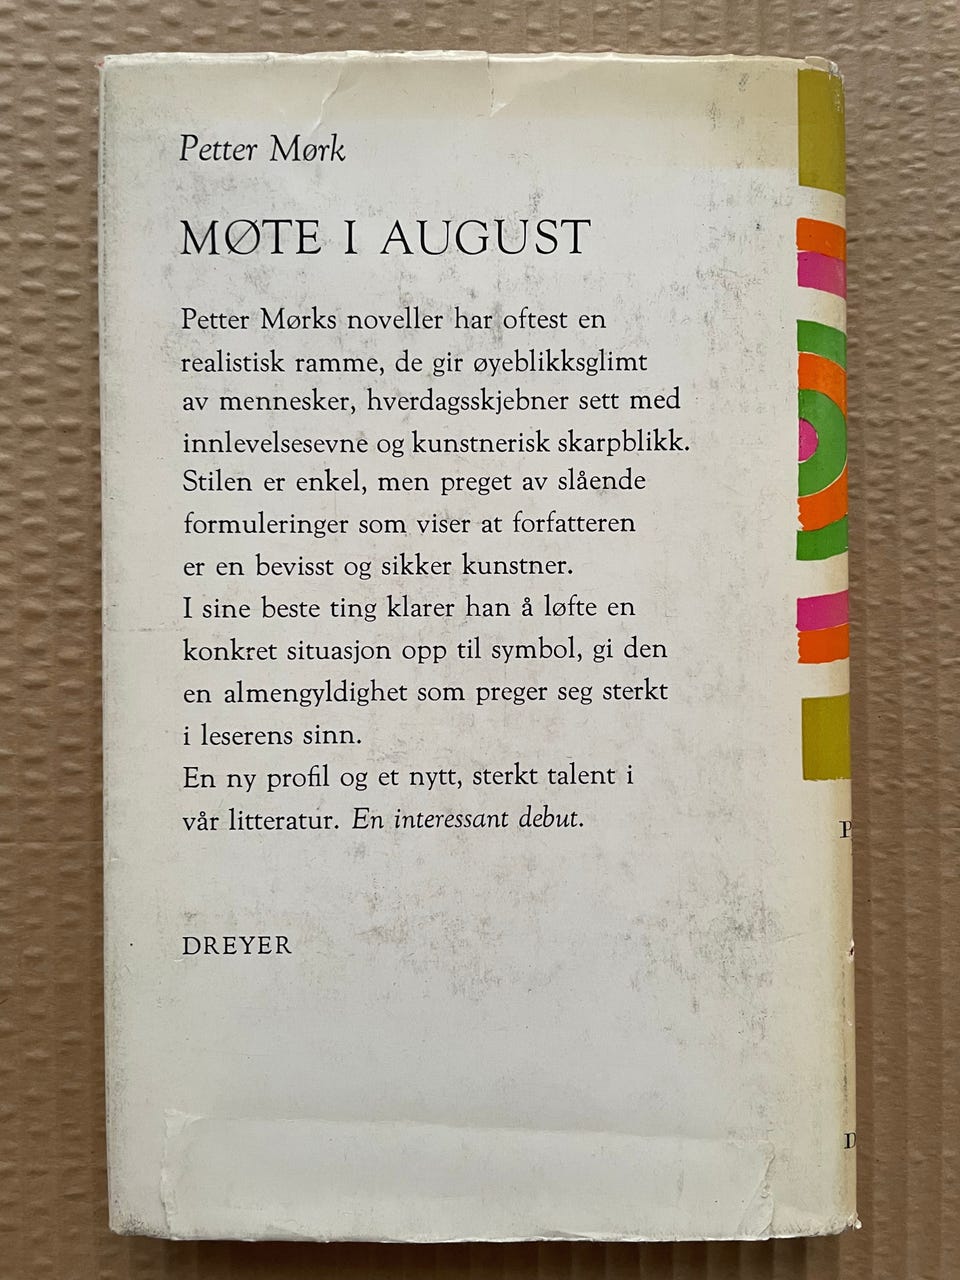 Petter Mørk
MØTE I AUGUST
Petter Mørks noveller har oftest en
realistisk ramme, de gir øyeblikksglimt
av mennesker, hverdagsskjebner sett med
innlevelsesevne og kunstnerisk skarpblikk.
Stilen er enkel, men preget av slående
formuleringer som viser at forfatteren
er en bevisst og sikker kunstner.
I sine beste ting klarer han å løfte en
konkret situasjon opp til symbol, gi den
en almengyldighet som preger seg sterkt
i leserens sinn.
En ny profil og et nytt, sterkt talent i
vår litteratur. En interessant debut.
DREYER
P
D